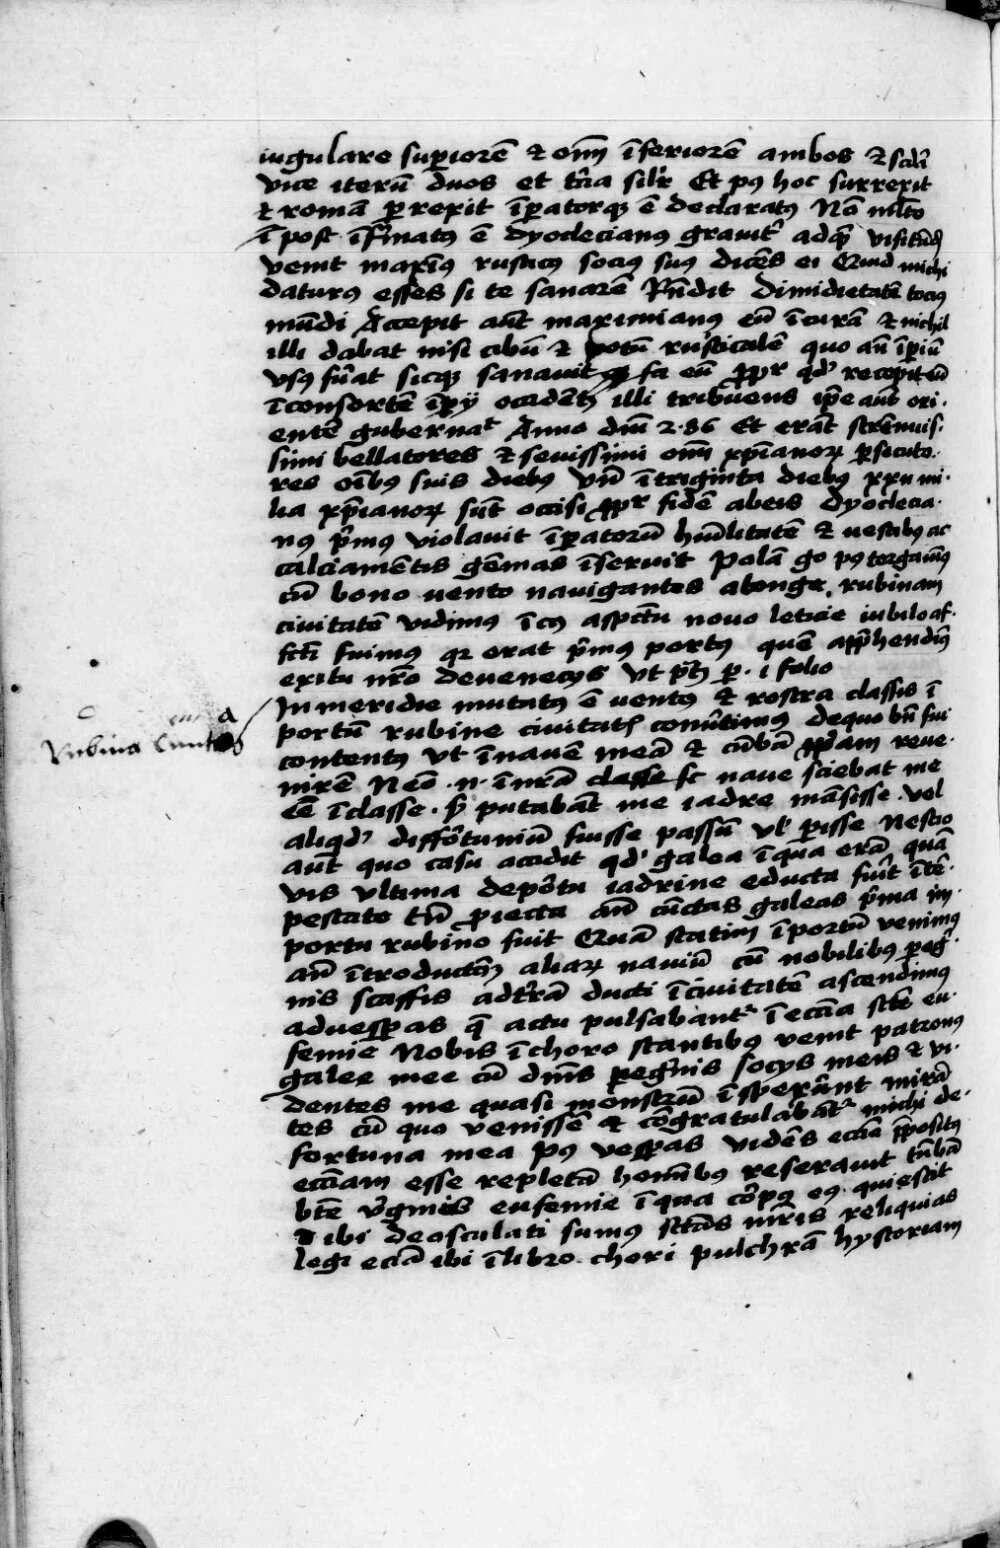 iugulare superiorē & om̄ īferiorē ambos & scd̄a
vice iterū duos et tc̄ia silr̄ Et pꝰ hoc surrexit
& romā perrexit īperatorqꝫ ē declaratꝰ Nō ml̄to
ī post īfirmatꝰ ē dyoclecianꝰ grauit̄ ad quē visitād
venit maxīꝰ rusticꝰ sociꝰ suꝰ dicēs ei Quid michi
daturꝰ esses si te sanarē Rn̄dit Dimidietatē tociꝰ
mūdi Accepit aūt maximianꝰ eū ī curā & nichil
illi dabat nisi cibū & potū rusticalē quo an̄ īperiū
vsꝰ fūat sicqꝫ sanauit eū ꝓpr̄ qd' recepit eū
ī consortē īperÿ occidētꝭ illi tribuens ip̄e aūt ori-
entē gubernat Anno dn̄i 286 Et erāt strēnuis-
simi bellatores & seuissimi om̄ xp̄ianoꝝ ꝑsecuto-
res oībꝰ suis diebꝰ Vn̄ ī triginta diebꝰ xxii mi-
lia xp̄ianoꝝ sūt occisi ꝓpr̄ fidē ab eis Dyoclecia-
nꝰ p̄mꝰ violauit īperatorū hūilitatē & uestibꝰ ac
calciamētis gēmas īseruit Polā go pꝰ tergaūiꝰ
cū bono uento nauigantes a longe rubinam
ciuitatē vidimꝰ ī cꝰ aspectu nouo leticie iubilo af-
fcti fuimus qꝛ erat p̄mꝰ portꝰ quē app̄hendimꝰ
exitu nr̄o de uenecÿs Vt pꝫ p. i folio
In meridie mutatꝰ ē uentꝰ & rostra classis ī
portū rubine ciuitatꝭ conūtimꝰ de quo bn̄ fui
contentꝰ Vt ī nauē meā & cūbā ꝓpriam reue-
nirē Nēo n̄ ī nr̄a classe sc naue sciebat me
eē ī classe sꝫ putabāt me iadre māsisse vel
aliqd' diffortuniū fuisse passū vl' ꝑisse Nescio
aūt quo casu accidit qd' galea ī qua erā quā
vis vltima de portu iadrine educta fuit ī tē-
pestate tn̄ ꝓiecta an̄ cūctas galeas p̄ma in
portu rubino fuit Quā statim ī portū venimꝰ
an̄ ītroductōm aliaꝝ nauiū cū nobilibꝰ ꝑegⁱ-
nis scaffis ad t̄rā ducti ī ciuitatē ascendimꝰ
ad uesꝑas q̄ actu pulsabantʳ ī ecc̄ia sc̄te eu-
femie Nobis ī choro stantibꝰ venit patronꝰ
galee mee cū dn̄is ꝑegⁱnis socÿs meis & vi-
dentes me quasi monstrū īspexerūt mirā-
tes cū quo venissē & cōgratulabātʳ michi de
fortuna mea pꝰ vesꝑas vidēs ecc̄ie p̄positꝰ
ecc̄iam esse repletā homībꝰ reserauit tūbā
bt̄e vgⁱnis eufemie ī qua corpꝰ eꝰ quiescit
& ibi deosculati sumꝰ sct̄as mr̄is reliquias
legi eciā ibi ī libro chori pulchrā hystoriam
Rubina Ciuitas